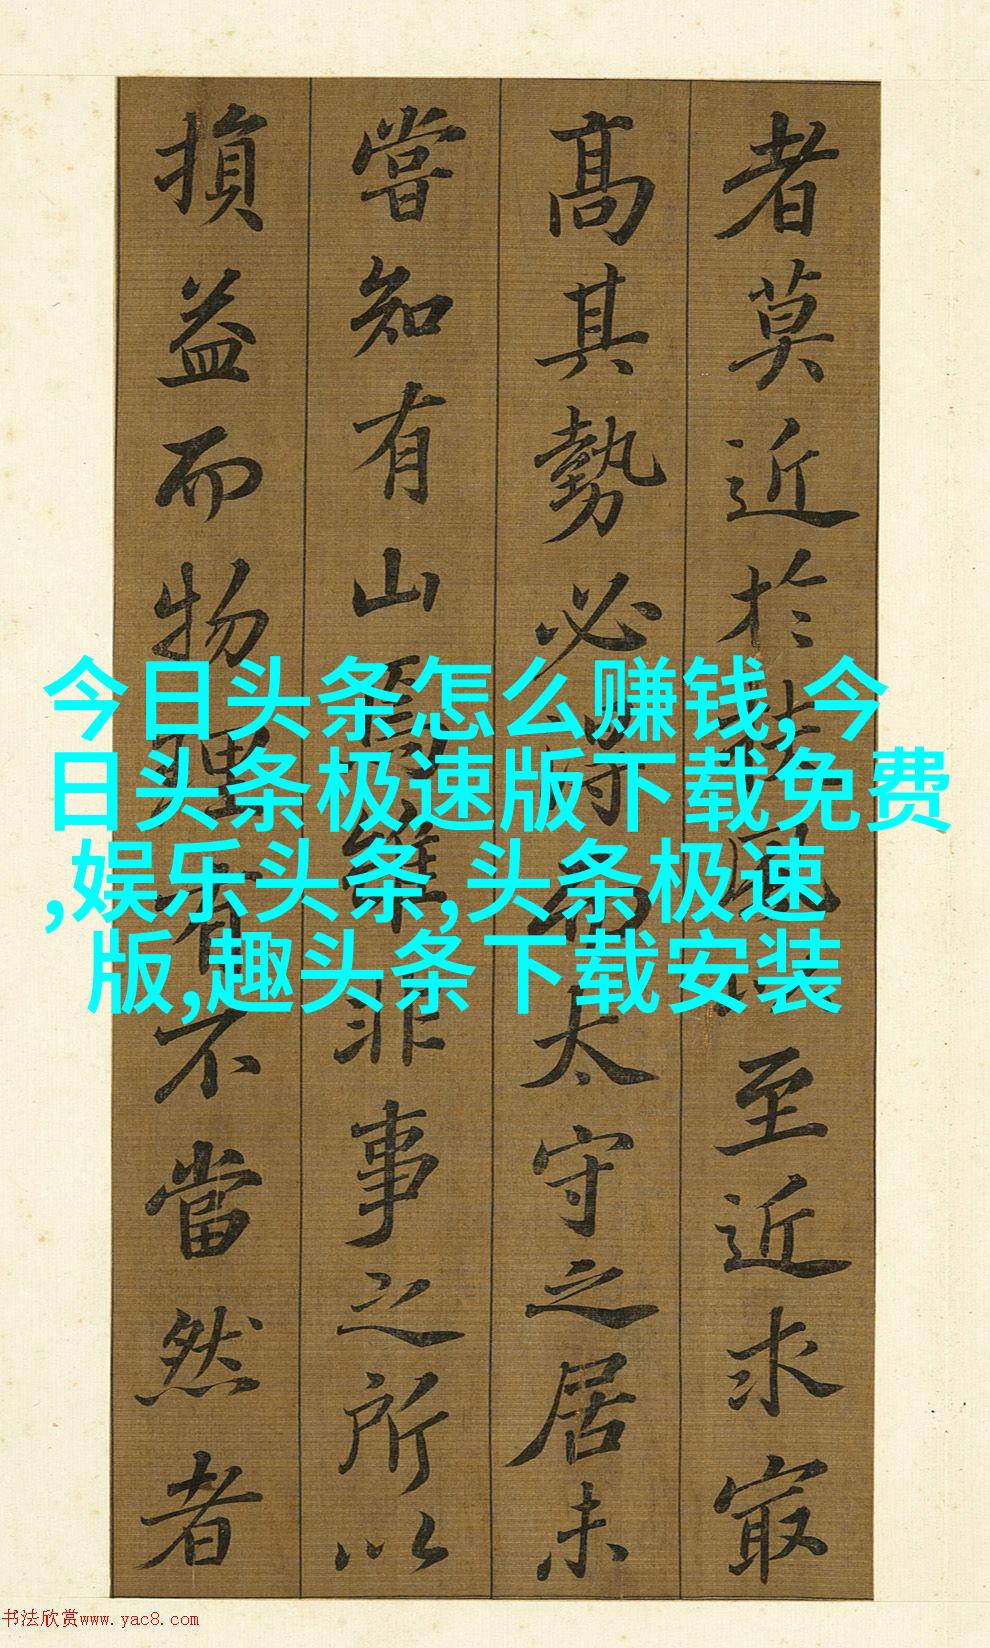 者莫近於扶風以至近求㝡
高其勢必得而太守之居未
嘗知有山焉雖非事之所以
損益而物理有不當然者
今日头条怎么赚钱,今
日头条极速版下载免费
,娱乐头条,头条极速
版,趣头条下载安装
书法欣赏www.yac8.com